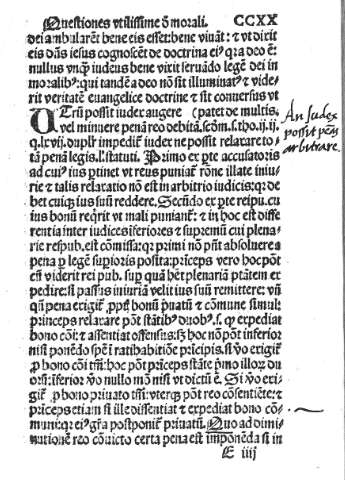 Questiones vtilissime õ morali. CCXX
dei ambularẽt bene eis esset: bene viuãt: ⁊ vt dixit
eis dñs iesus cognoscẽt de doctrina ei⁹ q̃ ra deo ẽ:
nullus vnq̃ iudeus bene vixit seruãdo legẽ dei in
moralib⁹: qui tandẽ a deo nõ sit illuminat⁹ ⁊ vide-
rit veritatẽ euangelice doctrine ⁊ sit conuersus vt
VTrũ possit iudex augere (patet de multis.
vel minuere penã reo debitã. scðm. s. tho. ij. ij.
q. lxvij. duplr̃ impedit̃ iudex ne possit relaxare to-
tã penã legis. l. statuti. Primo ex pte accusatoris
ad cui⁹ ius ptinet vt reus puniat̃ rõne illate iniu-
rie ⁊ talis relaxatio nõ est in arbitrio iudicis: q̃ de-
bet cuiq̃ ius suũ reddere. Secũdo ex pte reipu. cu
ius bonũ reqrit vt mali puniant̃: ⁊ in hoc est diffe
rentia inter iudices iferiores ⁊ supremũ cui plena-
rie respub. est cõmissa: q̃ primi nõ pñt absoluere a
pena p legẽ supioris posita: prĩceps vero hoc põt
si viderit rei pub. sup quã hẽt plenariã ptãtem ex
pedire: si passus iniuriã velit ius suũ remittere: vñ
qñ pena exigit̃ ppt̃ bonũ p̃uatũ ⁊ cõmune simul:
prĩceps relaxare põt stãtib⁹ duob⁹. s. q̃ expediat
bono cõi: ⁊ assentiat offensus: sꝫ hoc nõ põt inferior
nisi ponẽdo spẽ ĩ ratihabitiõe prĩcipis. si ṽo exigit̃
p bono cõi tm̃: hoc põt prĩceps stãte p̃mo illoꝝ du
oꝝ: ĩferior ṽo nullo mõ nisi vt dictũ ẽ. Si ṽo exi-
git̃ p bono priuato tm̃: vterq̃ põt reo cõsentiẽte: ⁊
p̃ceps etiam si ille dissentiat ⁊ expediat bono cõ-
muni: q̃ ei⁹ gr̃a postponit̃ priuatũ. Quo ad dimi-
nutionẽ reo cõuicto certa pena est imponẽda si in
E iiij
An Judex
possit pẽs
arbitrare.